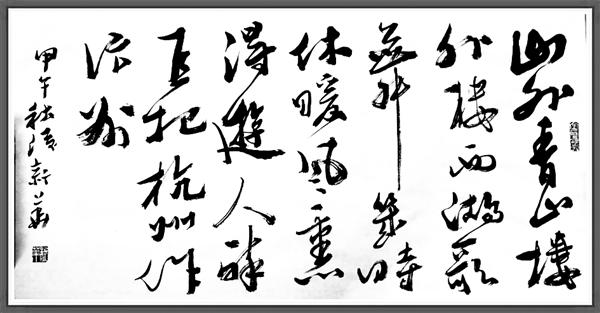 山外青山樓
外樓西湖歌
舞幾時
休暖風熏
得遊人醉
直把杭州作
汴州
甲午秋新華